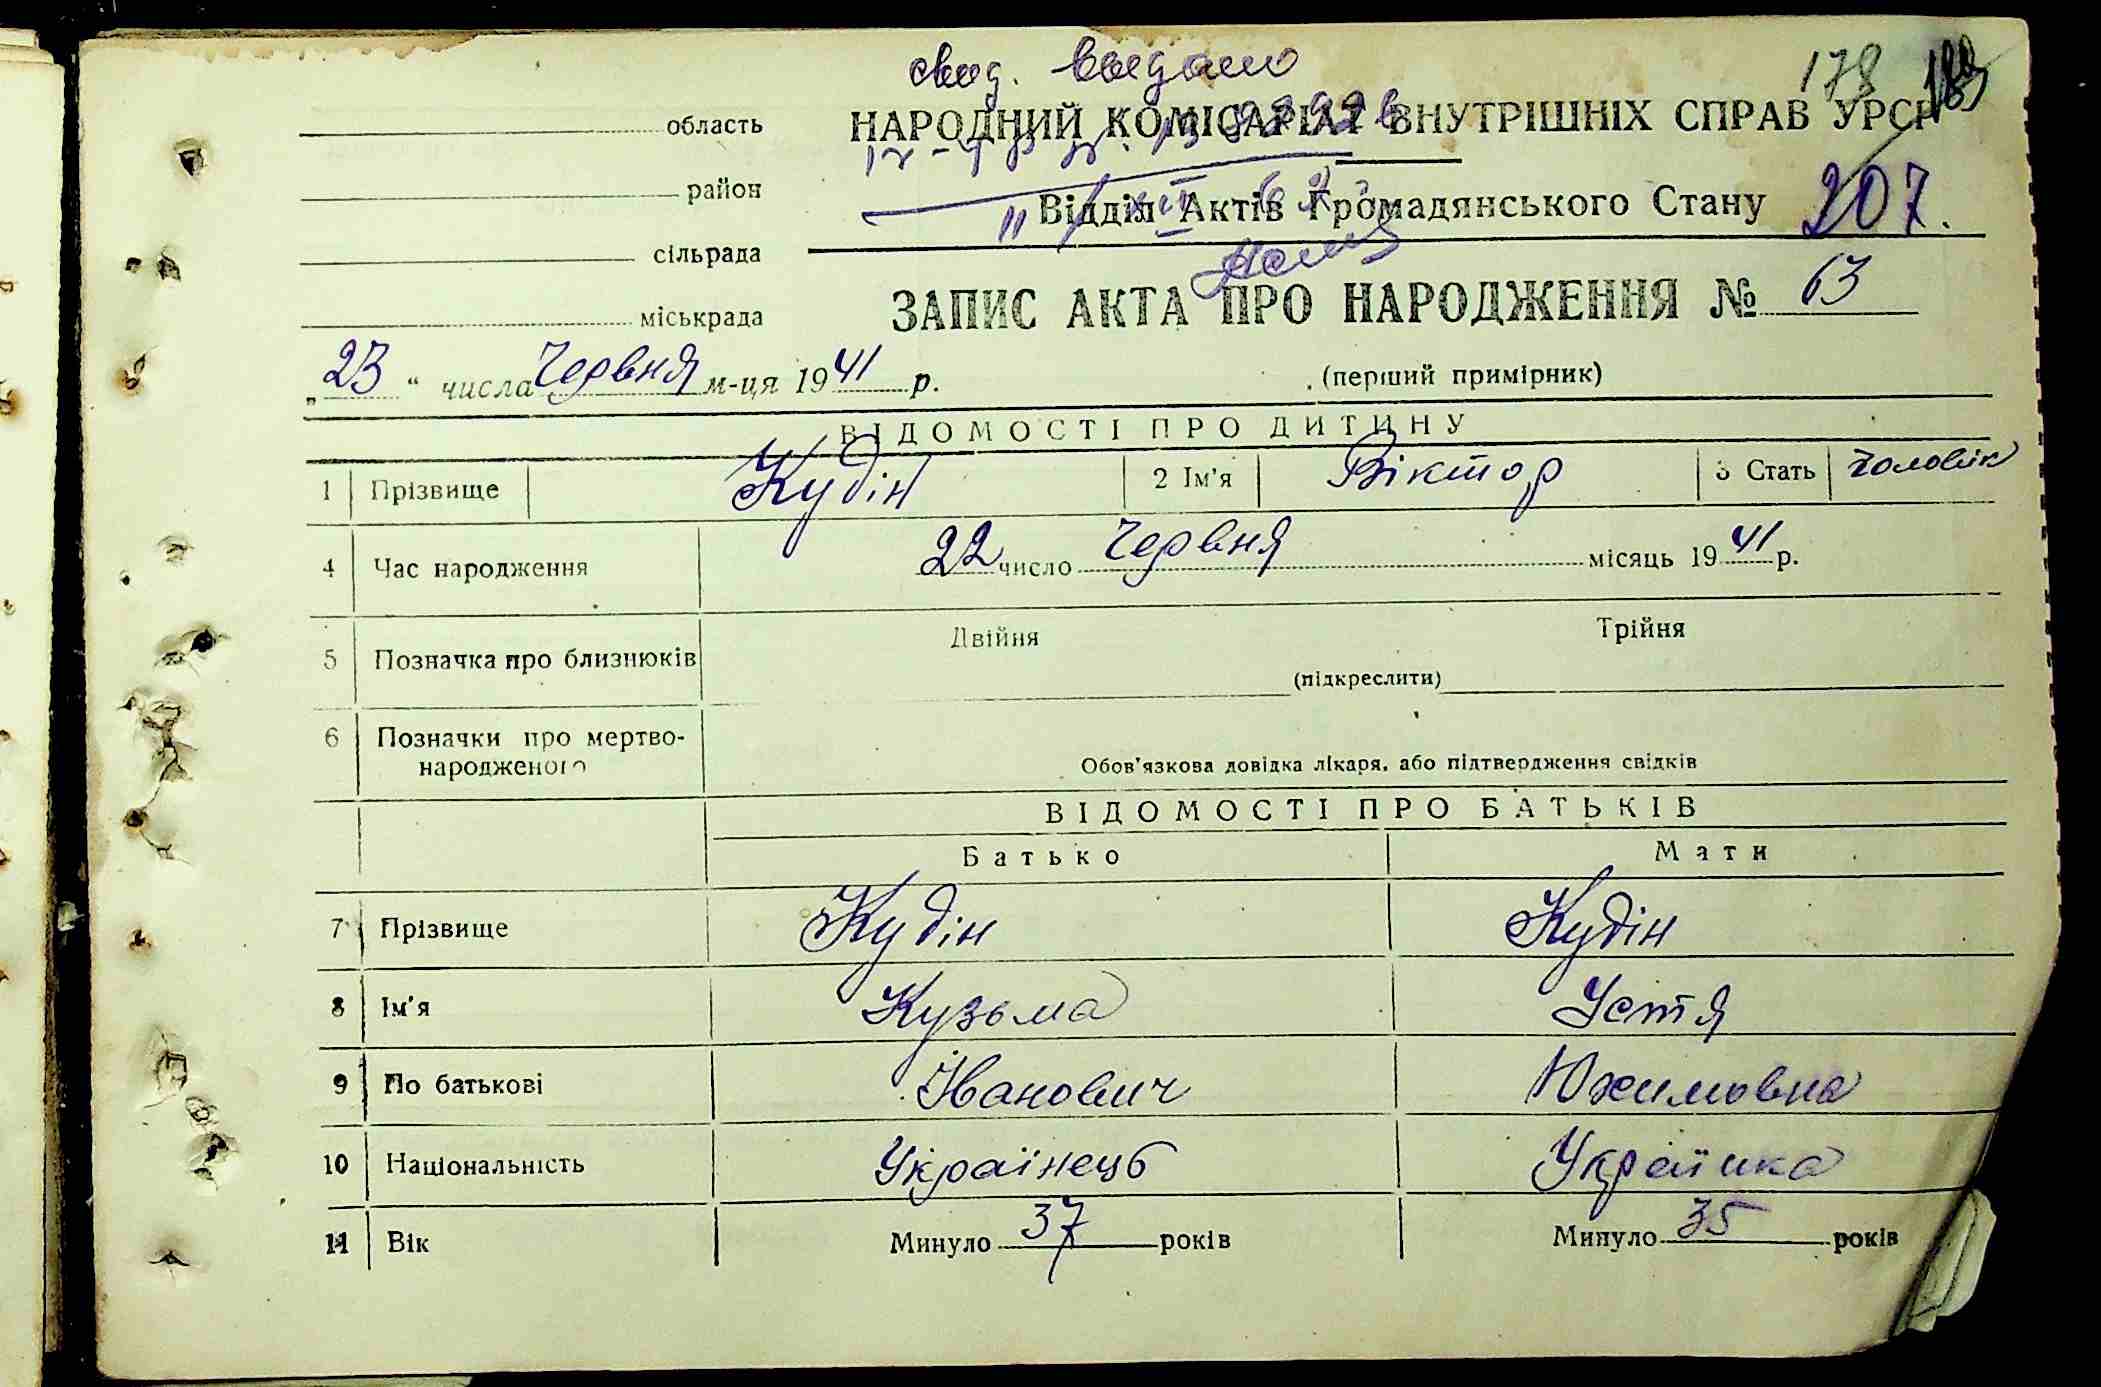 178 189
свид. выдано
область НАРОДНИЙ КОМІСАРІАТ ВНУТРІШНІХ СПРАВ УРСР
район
Відділ Актів Громадянського Стану 207.
сільрада
міськрада ЗАПИС АКТА ПРО НАРОДЖЕННЯ № 63
„23“ числа Червня м-ця 1941 р. (перший примірник)
ВІДОМОСТІ ПРО ДИТИНУ
1 Прізвище Кудін 2 Ім'я Віктор 3 Стать чоловік
4 Час народження 22 число Червня місяць 1941 р.
5 Позначка про близнюків Двійня Трійня
(підкреслити)
6 Позначки про мертво-
народженого Обов'язкова довідка лікаря, або підтвердження свідків
ВІДОМОСТІ ПРО БАТЬКІВ
Батько Мати
7 Прізвище Кудін Кудін
8 Ім'я Кузьма Устя
9 По батькові Іванович Юхимовна
10 Національність Українець Українка
11 Вік Минуло 37 років Минуло 35 років